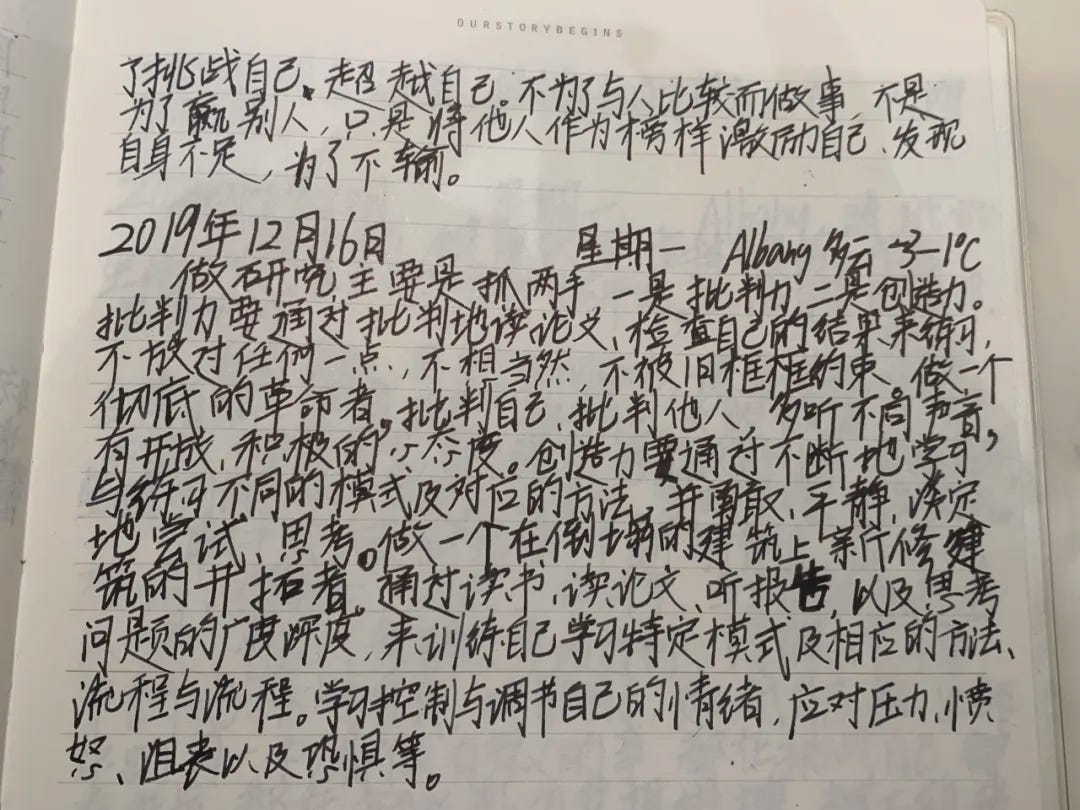 OURSTORYBEGINS
了挑战自己、超越自己。不为了与人比较而做事,不是
为了赢别人,只是将他人作为榜样激励自己、发现
自身不足,为了不输。
2019年12月16日 星期一 Albany 多云 -3–1℃
做研究主要是抓两手,一是批判力,二是创造力。
批判力要通过批判地读论文、检查自己的结果来练习,
不放过任何一点,不想当然,不被旧框框约束。做一个
彻底的革命者,批判自己,批判他人,多听不同声音,
有开放、积极的心态度。创造力要通过不断地学习
与练习不同的模式及对应的方法,并勇敢、平静、淡定
地尝试、思考。做一个在倒塌的建筑上新修建
筑的开拓者。通过读书、读论文、听报告,以及思考
问题的广度深度,来训练自己学习特定模式及相应的方法、
流程与流程。学习控制与调节自己的情绪,应对压力、愤
怒、沮丧以及恐惧等。